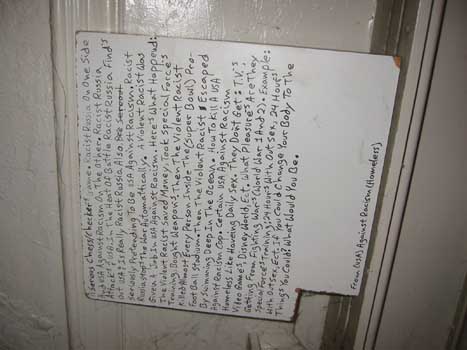 Chess/checker's Game. Racist Russia On One Side
And USA Against Racism On the Other. Racist Russia
Attack's USA. In the Heat Of Battle Racist Russia Find's
Out USA Is Really Racist Russia Also.
seriously Pretending To Be USA Against Racism. Racist
Russia stop's the War Automatically. A Violent Racist Was
Given with In USA Against Racism. Here's What Happend:
The Violent Racist Saved Money, Took Special Force's
Training, Bought Weapons, Then The Violent Racist
Killed Almost Every Person Inside The (Super Bowl) Pro-
Foot Ball Stadium. Then The Violent Racist Escaped
By Swimming Deep In the Ocean. How To Kill A USA
Against Racism Cop. Certain USA Against Racism
Homeless Like Haveing Daily Sex. They Don't Get: T.V.'s
Video Game's Disney World, Ect. What Pleasure's Are They
Getting From Fighting War's (World War 1 And 2). Example:
Special Force's Training, 24 Hours With Out Sex, 24 Hours
With Out Sex, Ect. If You Could Change Your Body To The
Things You Could? What Would You Be.
From (USA) Against Racism (Homeless)